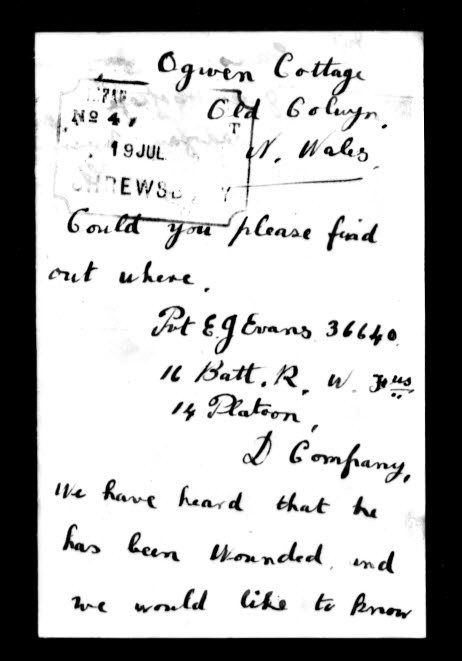 Ogwen Cottage
Old Colwyn.
N. Wales.
No 4,
T
19 JUL
SHREWSB Y
Could you please find
out where.
Pvt E. J Evans 36640.
16 Batt. R. W. Fus
14 Platoon,
D Company,
We have heard that he
has been wounded. and
we would like to know